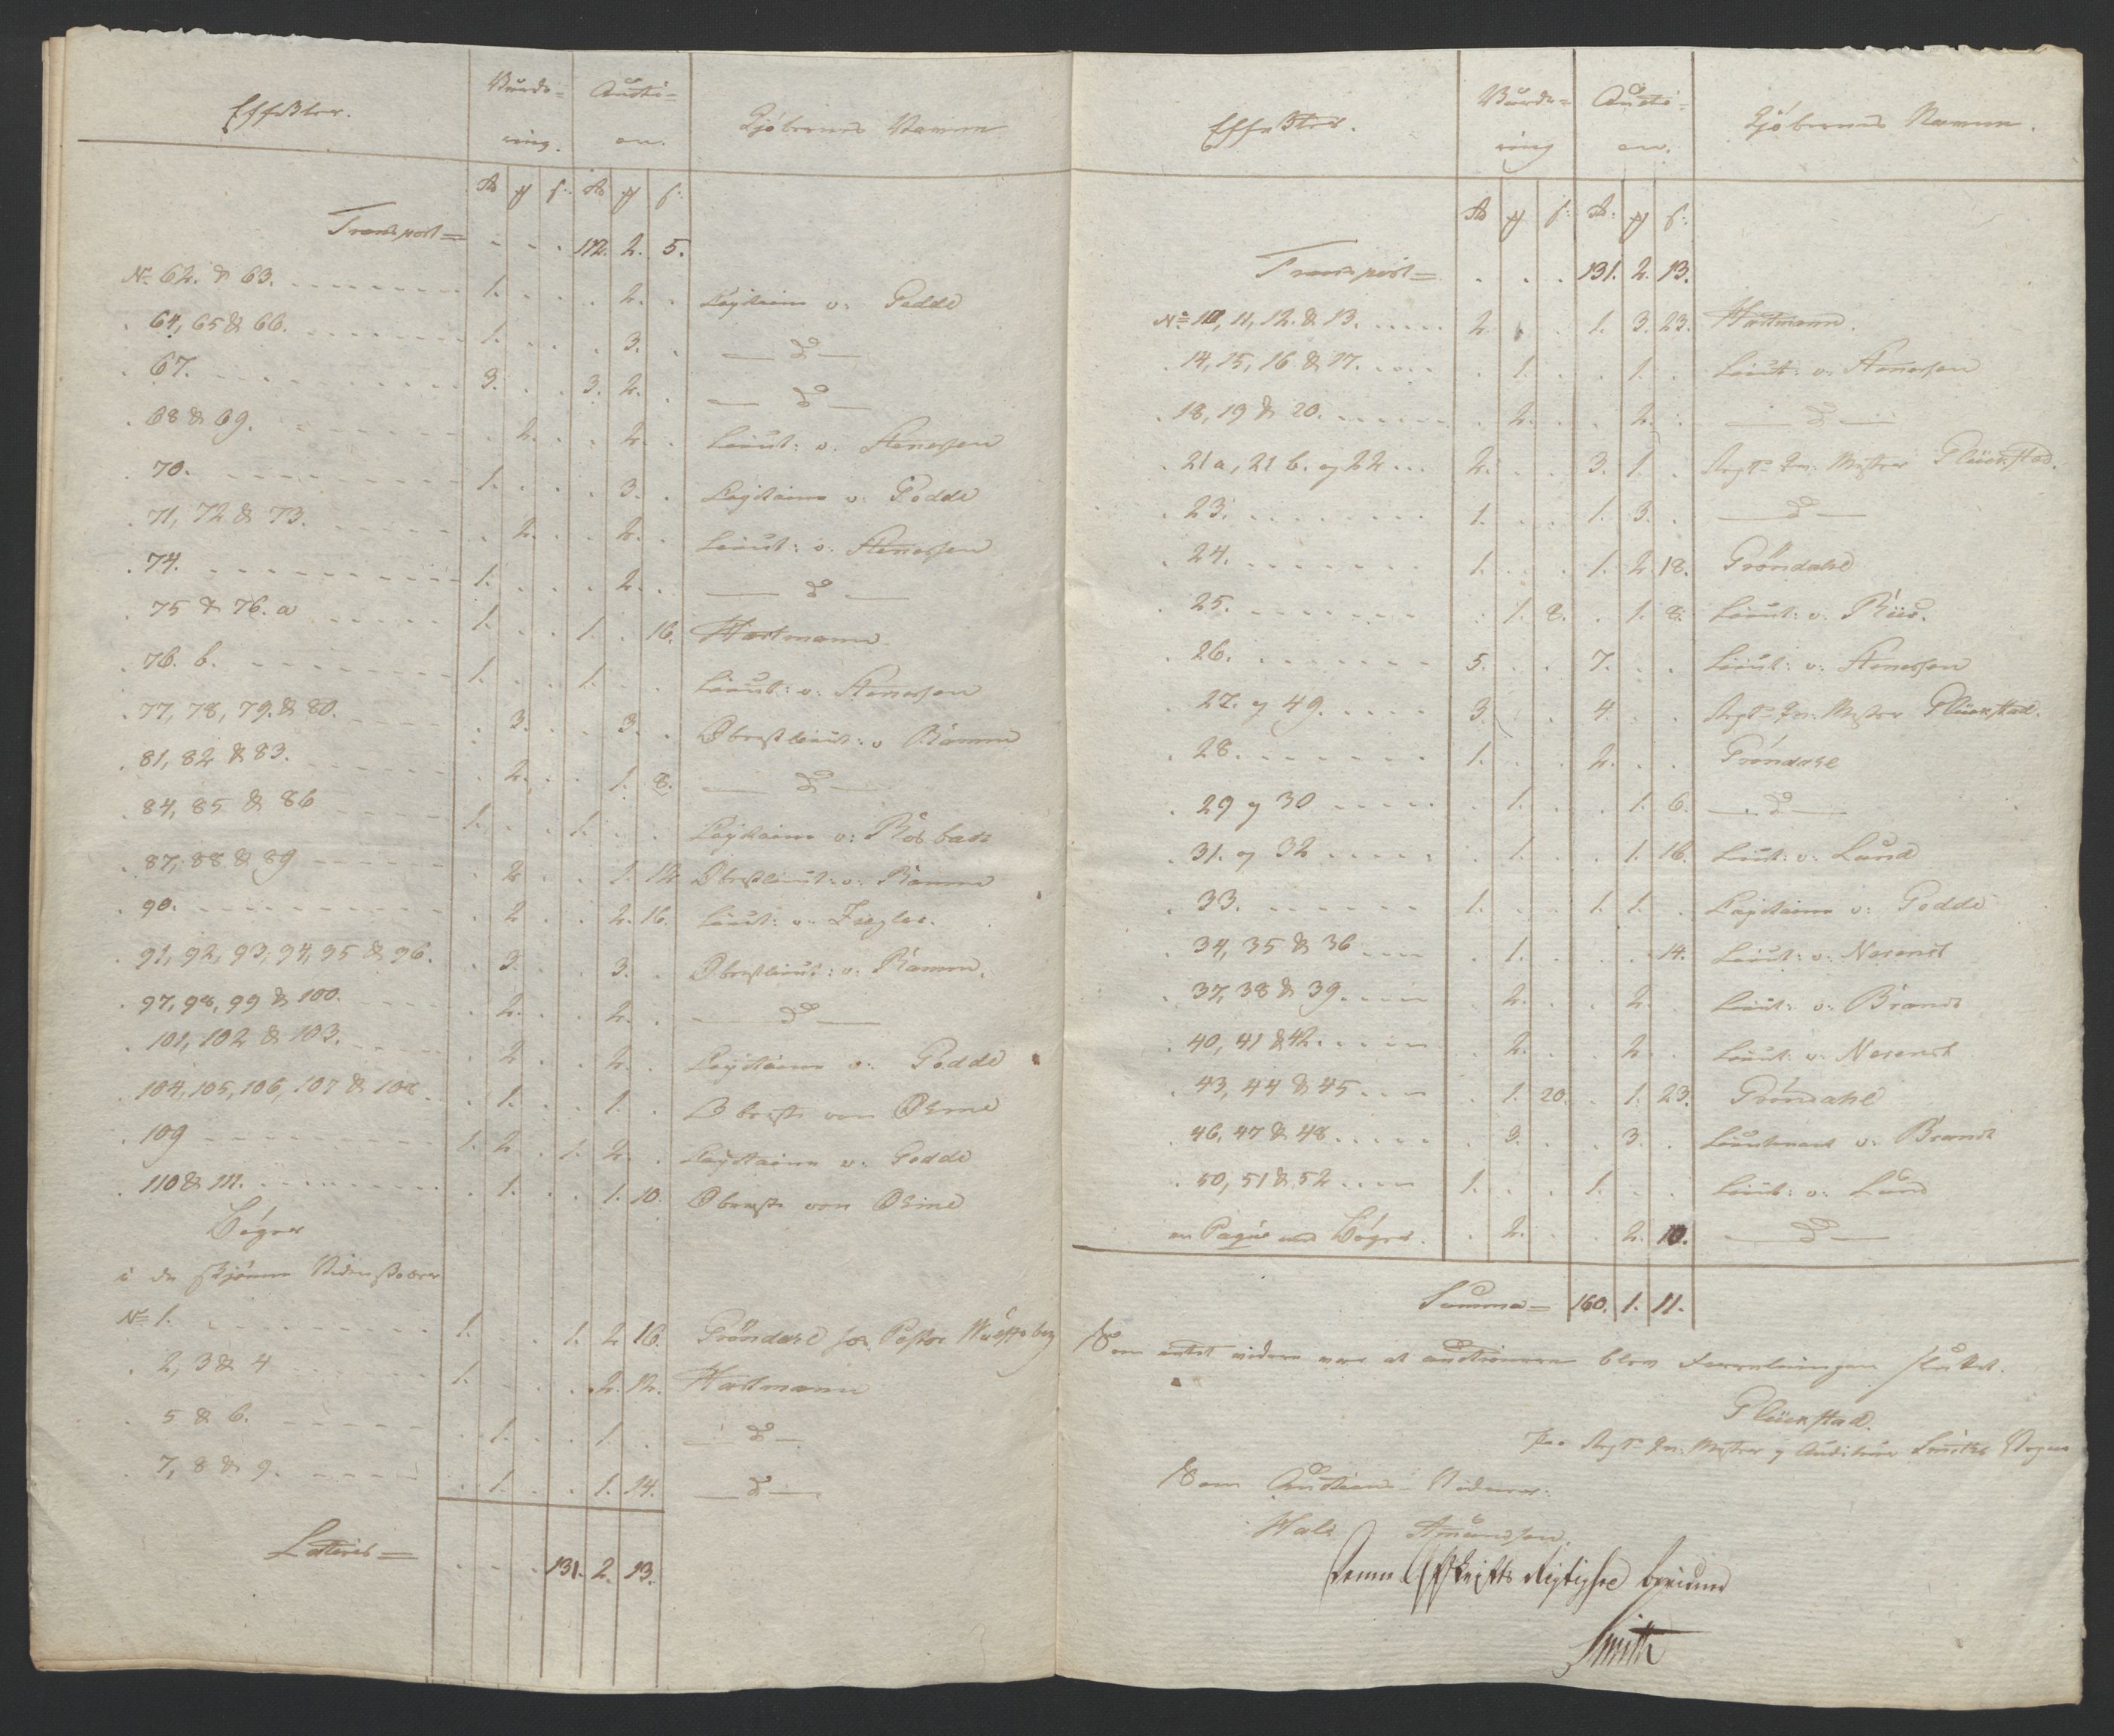 Effecter. Vurde= Aucti= Kjöbernes Navne
ring. on.
Rd ℳ s: Rd ℳ s:
Transport= . . . 112. 2. 5.
No 62. & 63. 1. . . . 2. . Capitaine v: Godde
. 64, 65 & 66. 1. . . . 3. . — do —
. 67. 3. . . 3. 2. . — do —
. 68 & 69. . 2. . . 2. . Lieut: v. Stenersen
. 70. 1. . . . 3. . Capitaine v. Godde
. 71, 72 & 73. . 2. . . 2. . Lieut: v. Stenersen
. 74. 1. . . . 2. . — do —
75 & 76. a 1. . . 1. . 16. Hartmann
. 76. b. 1. . . 1. . . Lieut: v: Stenersen
. 77, 78, 79. & 80. . 3. . . 3. . Obrestlieut: v Ramm
. 81, 82 & 83. . 2. . . 1. 8. — do —
. 84, 85 & 86 1. . . 1. . . Capitaine v: Rosbach
. 87, 88 & 89 . 2 . . 1. 12 Obrstlieut: v: Ramm
. 90. . 2 . . 2. 16. Lieut: v. Ziegler.
. 91, 92, 93, 94, 95 & 96. . 3. . . 3. . Obrestlieut: v: Ramm.
. 97, 98, 99 & 100. . 2. . . 2. . — do —
. 101, 102 & 103. . 2 . . 2. . Capitaine v: Godde
. 104, 105, 106, 107 & 108. . 1. . . 1. . Obrest von Ohme
. 109 1. 2. . 1. 2. . Capitaine v: Godde
. 110 & 111. . 1. . . 1. 10. Obrest von Ohme
Böger
i de skjönne Videnskaber
No 1. 1. . . 1. 2 16. Gröndahl for Pastor
. 2, 3 & 4 1. . . . 2. 12. Hartmann
. 5 & 6. . 1. . . 1. . — do —
. 7, 8 & 9. . 1. . . 1. 14. — do —
Lateris = . . . 131. 2. 13.
Effecter. Vurde= Aucti= Kjöbernes Navne.
ring on.
Rd ℳ s: Rd: ℳ s:
Transport= . . . 131. 2. 13.
No 10, 11, 12. & 13. 2. . . 1. 3. 23. Hartmann.
. 14, 15, 16 & 17. . 1. . . 1. . Lieut: v: Stenersen
. 18, 19 & 20. . 2. . . 2. . — do —
. 21a, 21 b. og 22 2. . . 3. 1. . Regt: Qv: Mester Glückstad.
. 23. 1. . . 1. 3. . — do —
. 24. 1. . . 1. 2 18. Gröndahl
. 25. . 1. 8. . 1. 8. Lieut: v: Riis.
. 26. 5. . . 7. . . Lieut: v: Stenersen
. 27. og 49. 3. . . 4. . . Regt: Qv: Mester Glückstad.
. 28. 1. . . 2. . . Gröndahl
. 29 og 30 . 1. . . 1. 6. — do —
. 31. og 32 . 1. . . 1. 16. Lieut: v: Lund
. 33. 1. . . 1. 1. . Capitaine v: Godde
. 34, 35 & 36 . 1. . . . 14. Lieut: v: Nesenst
. 37, 38 & 39. . 2. . . 2. . Lieut: v: Brandt
. 40, 41 & 42. . 2. . . 2 . Lieut: v: Nesenst
. 43, 44 & 45 . 1. 20. . 1. 23. Gröndahl
. 46, 47 & 48 . 3. . . 3. . Lieutenant v: Brandt
. 50, 51 & 52 1. . . 1. . . Lieut: v: Lund
en Paque med Böger. . 2. . . 2. 10. — do —
Summa= 160. 1. 11.
Som intet videre var at auctionere blev Forretningen sluttet.
Glückstad.
Paa Regt: Qv: Mester og Auditeur Smiths Vegne
Som Auctions Vidner:
Amundsen.
Denne Afskrifts Rigtighed bevidner
Smith